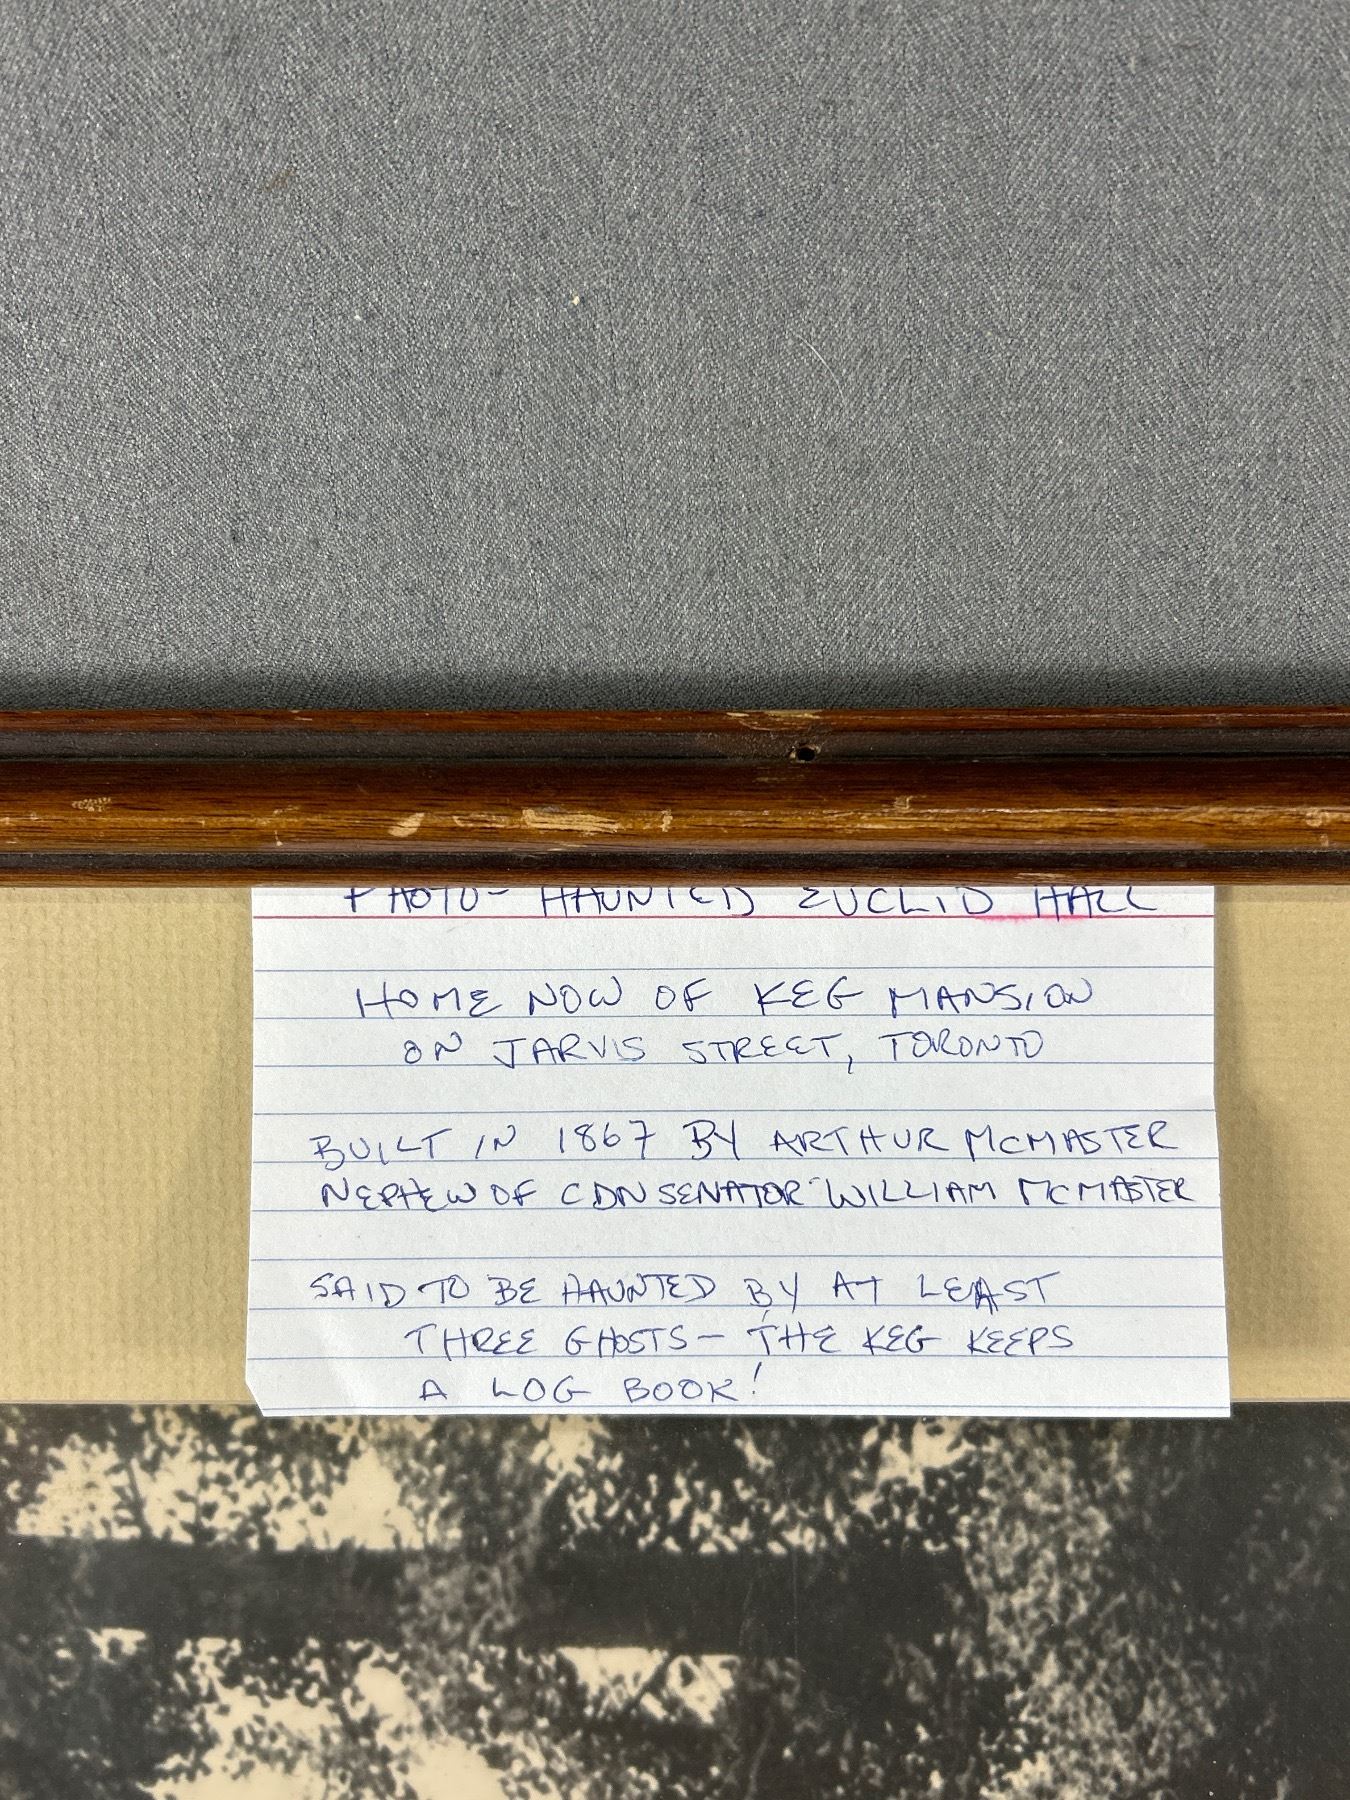 PHOTO- HAUNTED EUCLID HALL
HOME NOW OF KEG MANSION
ON JARVIS STREET, TORONTO
BUILT IN 1867 BY ARTHUR MCMASTER
NEPHEW OF CDN SENATOR WILLIAM MCMASTER
SAID TO BE HAUNTED BY AT LEAST
THREE GHOSTS- THE KEG KEEPS
A LOG BOOK!